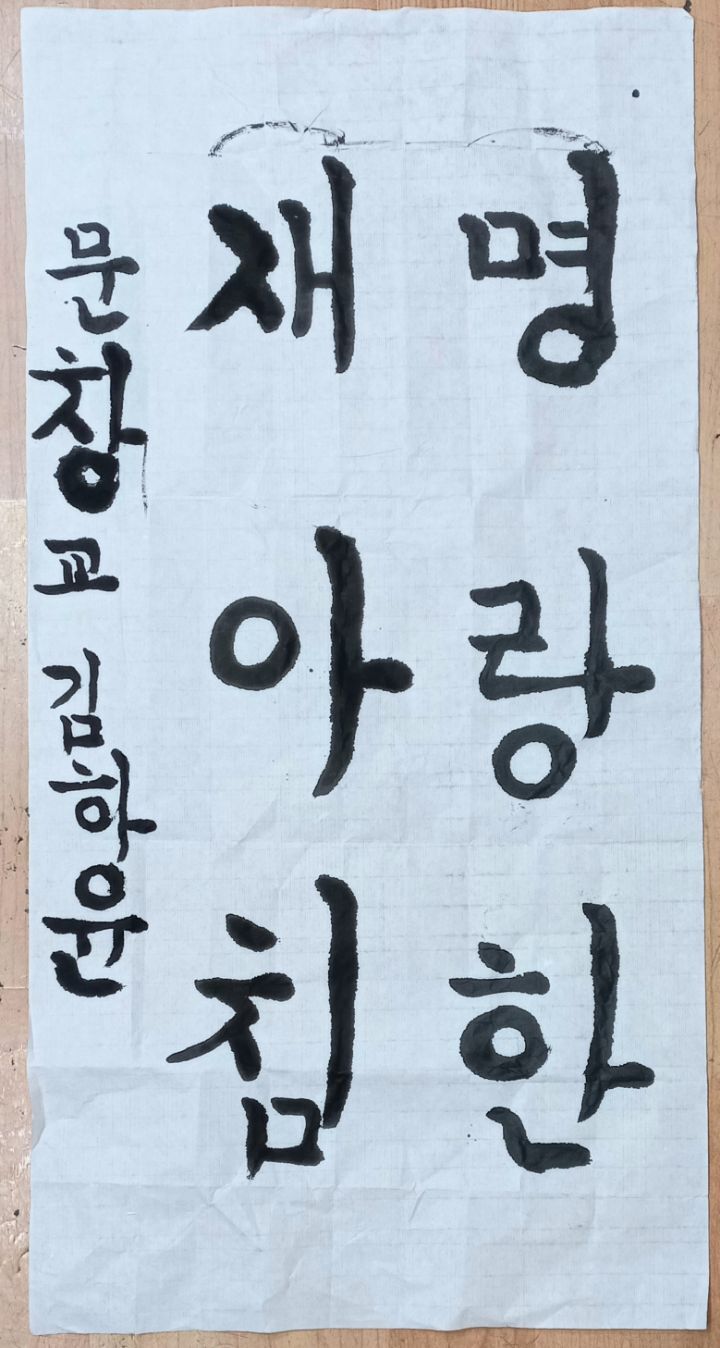 명랑한
재아침
문창교 김학윤